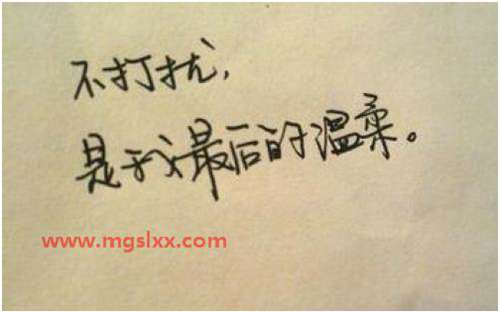 不打扰，
是我最后的温柔。
www.mgslxx.com